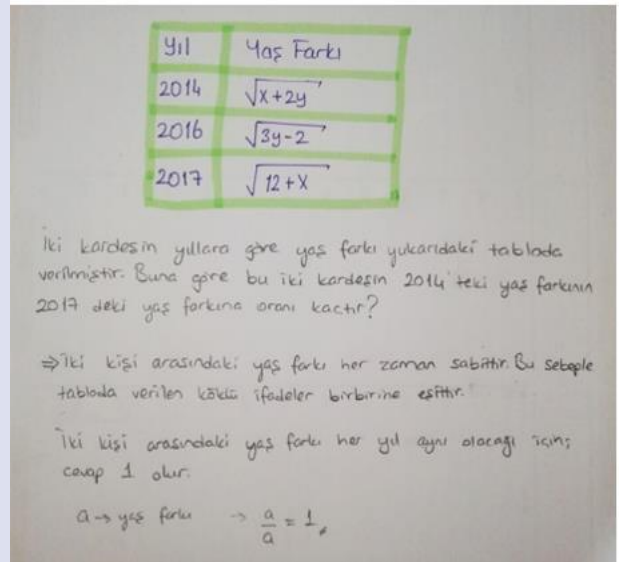 Yıl Yaş Farkı
2014 √x+2y
2016 √3y-2
2017 √12+x
İki kardeşin yıllara göre yaş farkı yukarıdaki tabloda
verilmiştir. Buna göre bu iki kardeşin 2014'teki yaş farkının
2017 deki yaş farkına oranı kaçtır?
⇒ İki kişi arasındaki yaş farkı her zaman sabittir. Bu sebeple
tabloda verilen köklü ifadeler birbirine eşittir.
İki kişi arasındaki yaş farkı her yıl aynı olacağı için;
cevap 1 olur.
a → yaş farkı → a/a = 1